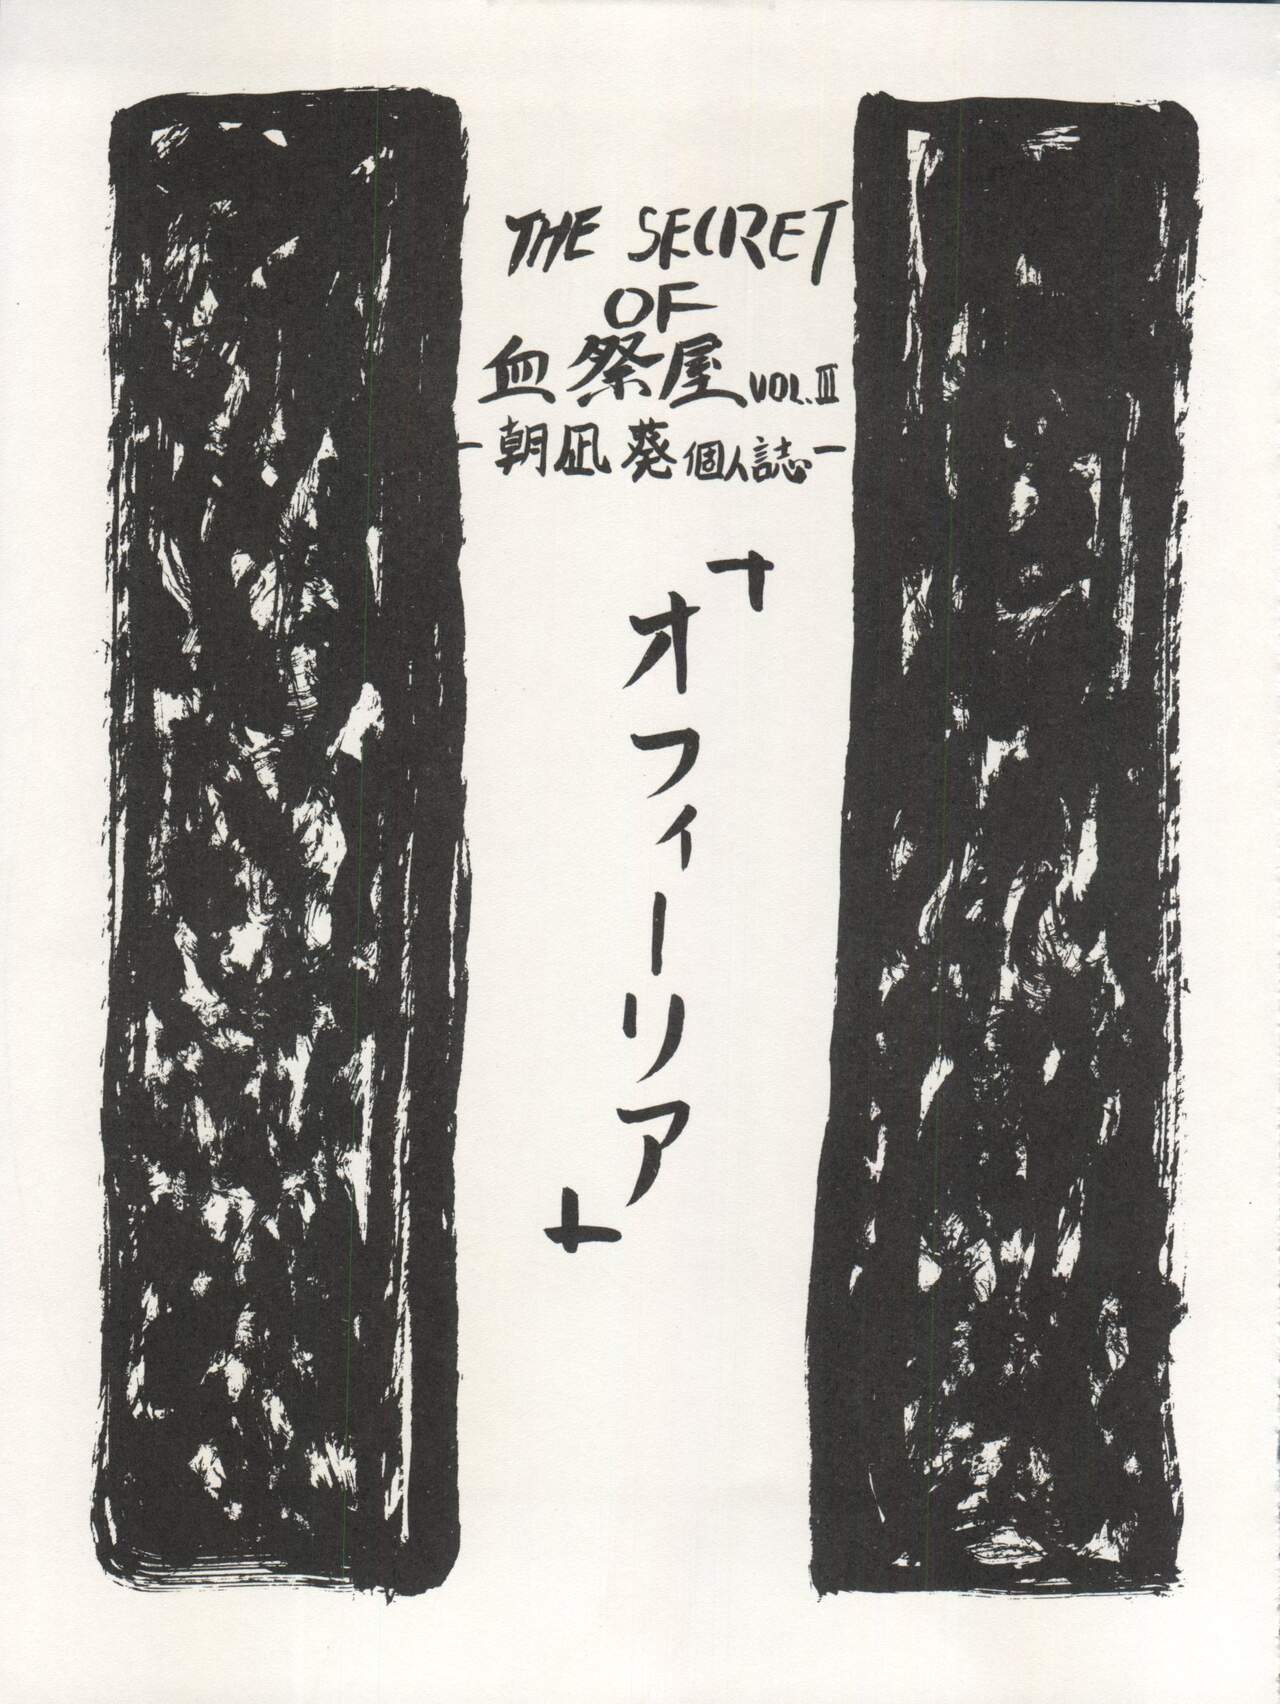 THE SECRET
OF
血祭屋 VOL.III
-朝凪 葵 個人誌-
「オフィーリア」